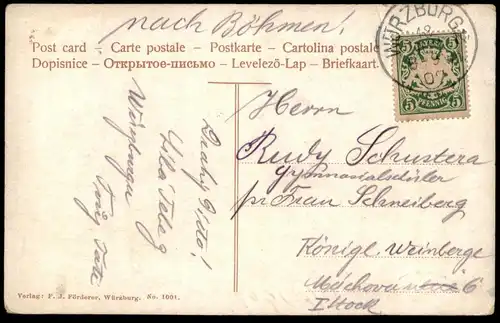 nach Böhmen!
Post card – Carte postale – Postkarte – Cartolina postale
Dopisnice – Открытое-письмо – Levelező-Lap – Briefkaart
WÜRZBURG
BAYERN
5 5
PFENNIG
Herrn
Rudy Schustera
Gymnasialschüler
pr Frau Schneider
Königl Weinberge
Máchova 6
I Stock
Drahý
Tvůj Táta
Verlag: F. J. Förderer, Würzburg. No. 1001.